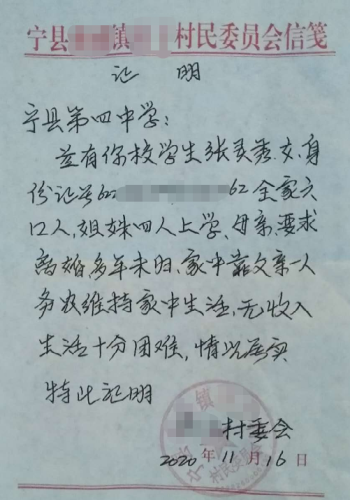 宁县 镇 村民委员会信笺
证 明
宁县第四中学：
兹有你校学生张灵 女,身
份证号62 62 全家六
口人,姐妹四人上学、母亲要求
离婚多年未归,家中靠父亲一人
务农维持家中生活,无收入
生活十分困难,情况属实
特此证明
村委会
2020年11月16日